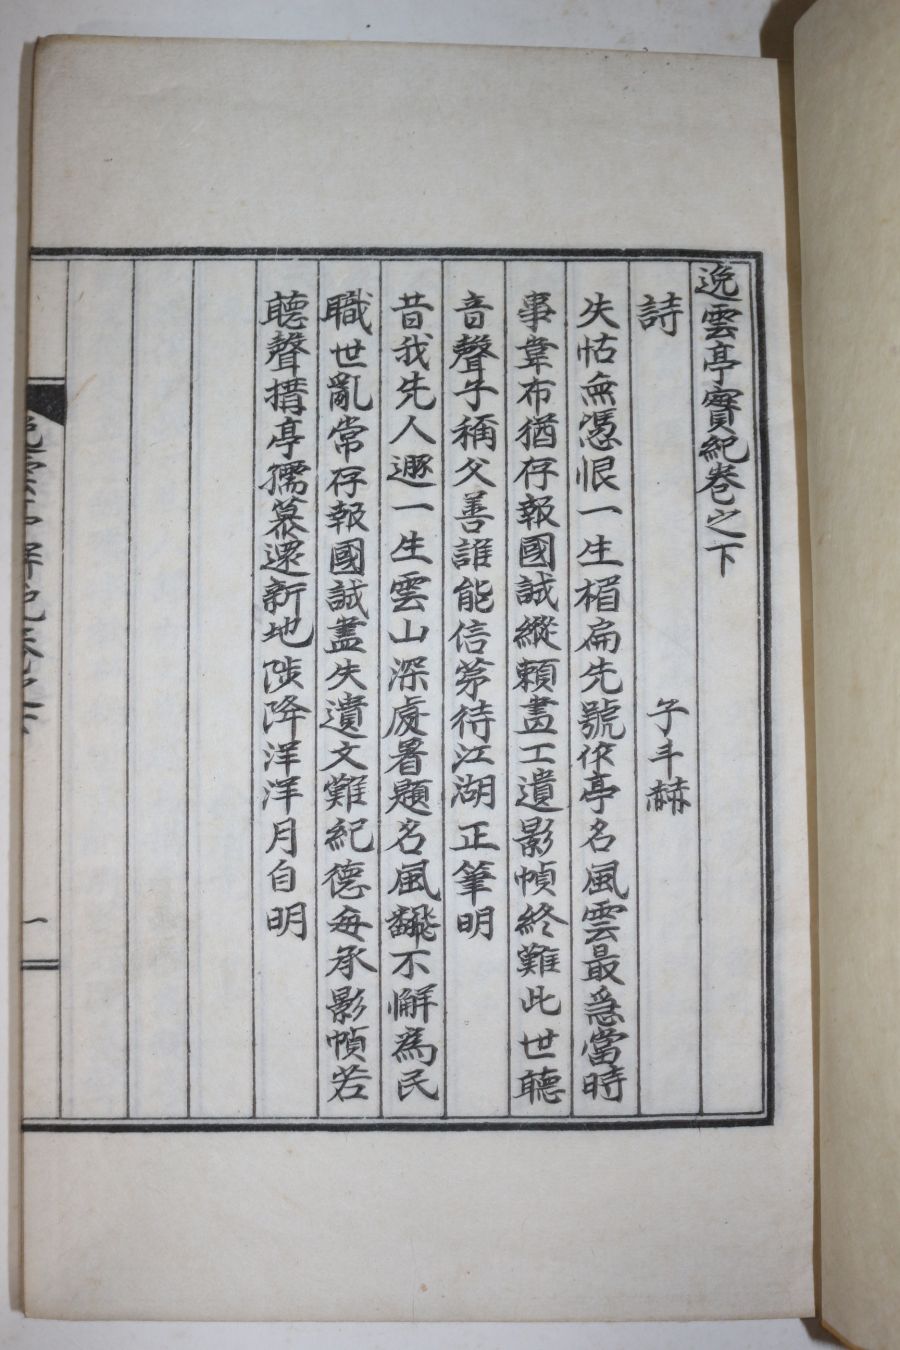 逸雲亭實紀卷之下
詩
子斗赫
失怙無憑恨一生楣扁先號作亭名風雲最急當時
事韋布猶存報國誠縱賴畵工遺影幀終難此世聽
音聲子稱父善誰能信第待江湖正筆明
昔我先人遯一生雲山深處署題名風飜不懈爲民
職世亂常存報國誠盡失遺文難紀德每承影幀若
聽聲搆亭孺慕還新地陟降洋洋月自明
一